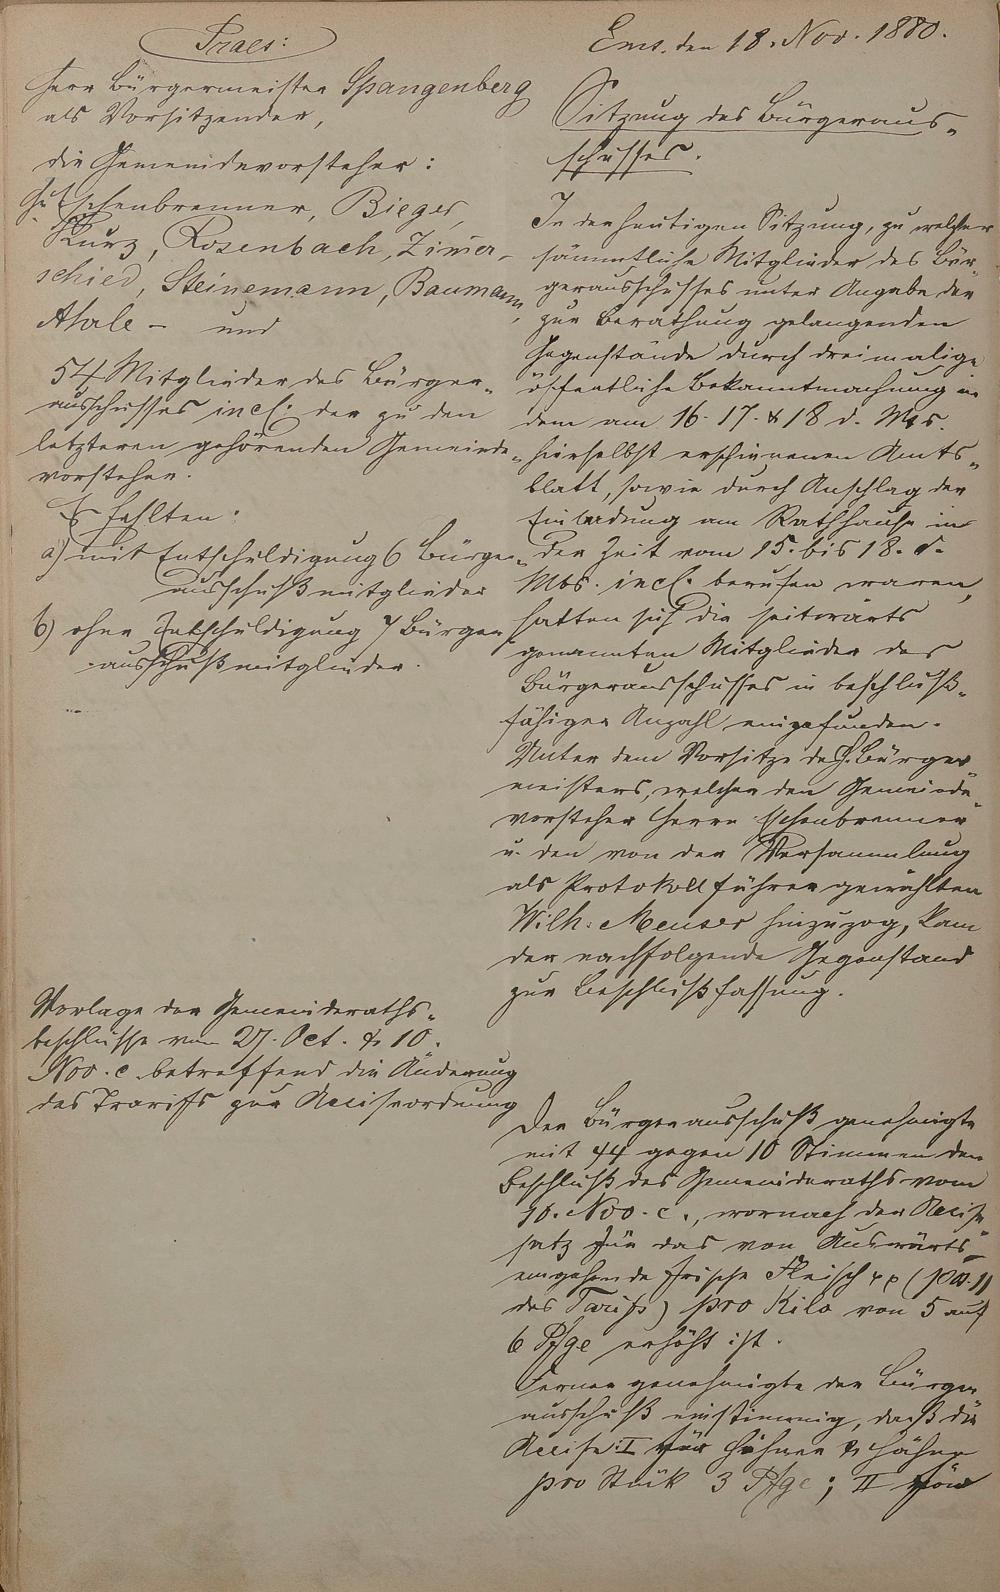 Praes:
Herr Bürgermeister Spangenberg
als Vorsitzender,
die Gemeindevorsteher:
Eschenbrenner, Bieger,
Kurz, Rosenbach, Zimer-
schied, Steinemann, Baumann,
und
54 Mitglieder des Bürger-
ausschusses incl: der zu den
letzteren gehörenden Gemeinde-
vorsteher.
Es fehlten:
a) mit Entschuldigung 6 Bürger-
ausschußmitglieder
b) ohne Entschuldigung 7 Bürger
ausschußmitglieder.
Vorlage der Gemeinderaths-
beschlüsse vom 27. Oct. & 10.
Nov. c. betreffend die Änderung
des Tarifs zur Acciseordnung
Ems. den 18. Nov. 1880.
Sitzung des Bürgeraus-
schusses.
In der heutigen Sitzung, zu welcher
sämmtliche Mitglieder des Bür-
gerausschusses unter Angabe der
zur Berathung gelangenden
Gegenstände durch dreimalige
öffentliche Bekanntmachung in
dem am 16. 17. & 18 d. Mts.
hierselbst erschienenen Amts-
blatt, sowie durch Anschlag der
Einladung am Rathhause in
der Zeit vom 15. bis 18. d.
Mts. incl. berufen waren,
hatten sich die seitwärts
genannten Mitglieder des
Bürgerausschusses in beschluß-
fähiger Anzahl eingefunden.
Unter dem Vorsitze des H. Bürger
meisters, welcher den Gemeinde-
vorsteher Herrn Eschenbrenner
u. den von der Versammlung
als Protokollführer gewählten
Wilh: Meuser hinzuzog, kam
der nachfolgende Gegenstand
zur Beschlußfassung.
Der Bürgerausschuß genehmigte
mit 44 gegen 10 Stimmen den
Beschluß des Gemeinderaths vom
10. Nov. c., wornach der Accise
satz für das von Auswärts
eingehende frische Fleisch pp (pos. 11
des Tarifs) pro Kilo von 5 auf
6 Pfge erhöht ist.
Ferner genehmigte der Bürger
ausschuß einstimmig, daß die
Accise: I für Hühner & Hähne
pro Stück 3 Pfge; II für